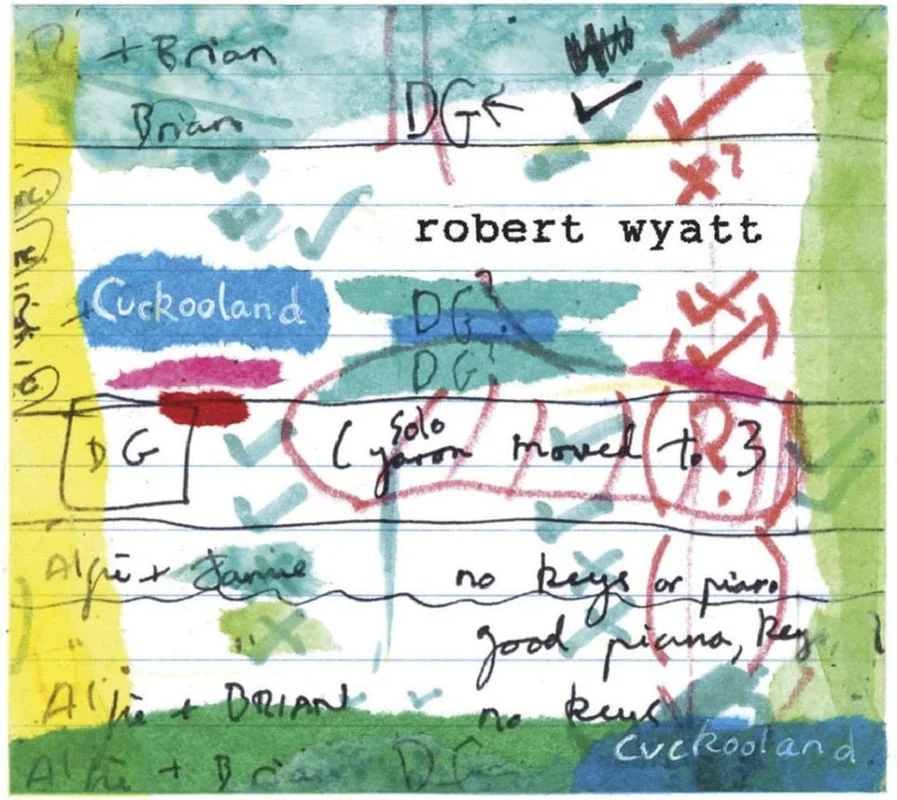 + Brian
Brian DG←
x?
robert wyatt
Cuckooland DG?
DG?
DG (solo moved to ? 3
Alfie + Jamie no keys or piano
" good piano, key
Alfie + BRIAN no keys
cuckooland
Alfie + Brian DG